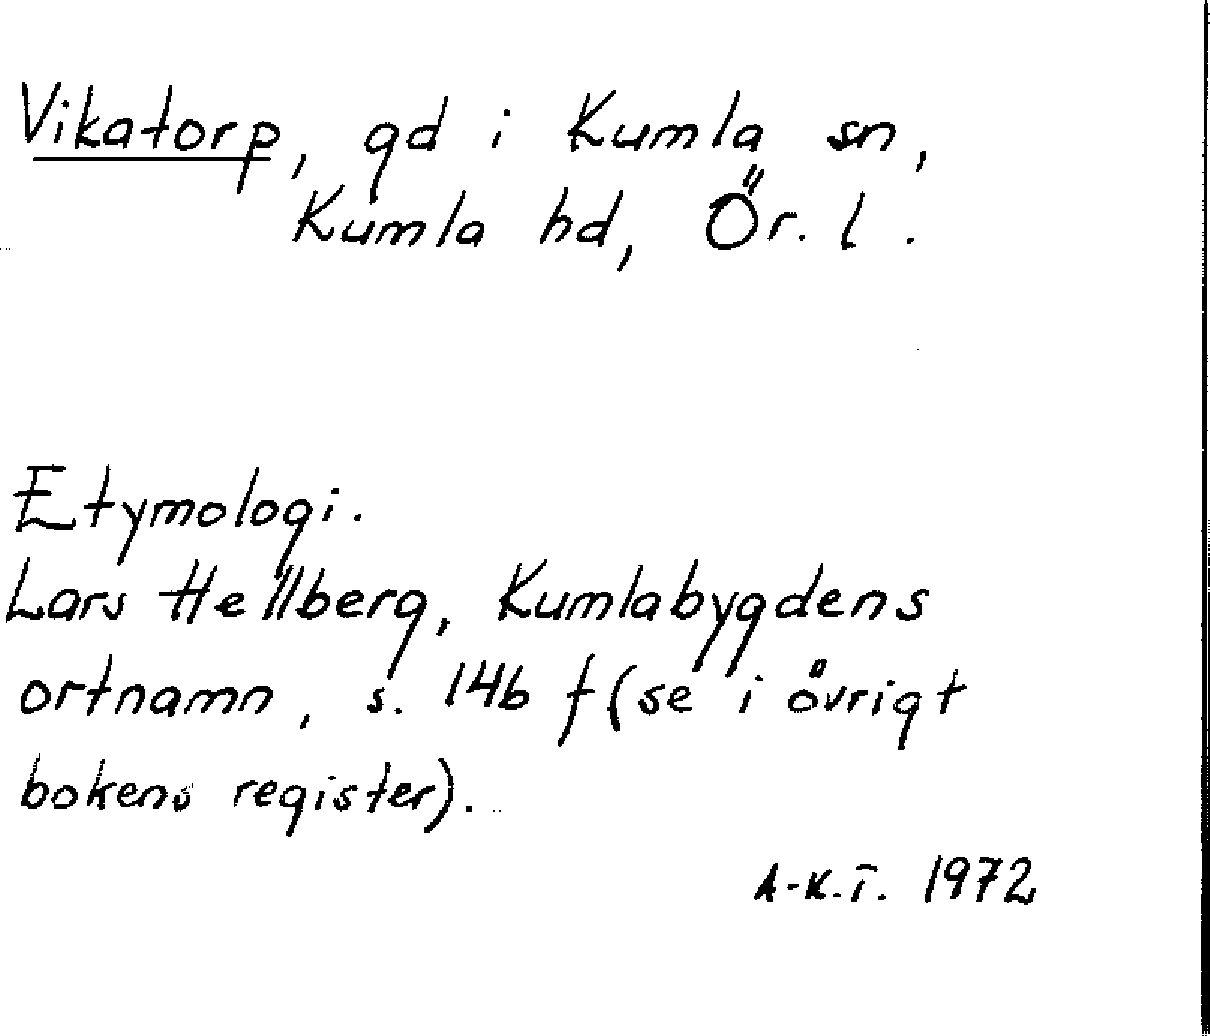 Vikatorp, gd i Kumla sn,
Kumla hd, Ör. l.
Etymologi.
Lars Hellberg, Kumlabygdens
ortnamn, s. 146 f (se i övrigt
bokens register).
A-K.T. 1972